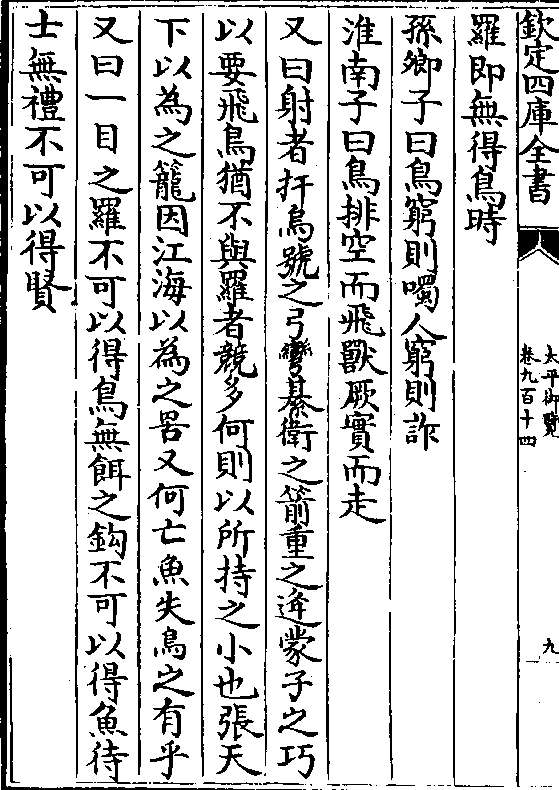 欽定四庫全書
太平御覽
卷九百十四
九
羅即無得鳥時
孫卿子曰鳥窮則噣人窮則詐
淮南子曰鳥排空而飛獸厥實而走
又曰射者扞烏號之弓彎綦衛之箭重之逄蒙子之巧
以要飛鳥猶不與羅者競多何則以所持之小也張天
下以為之籠因江海以為之罟又何亡魚失鳥之有乎
又曰一目之羅不可以得鳥無餌之鈎不可以得魚待
士無禮不可以得賢